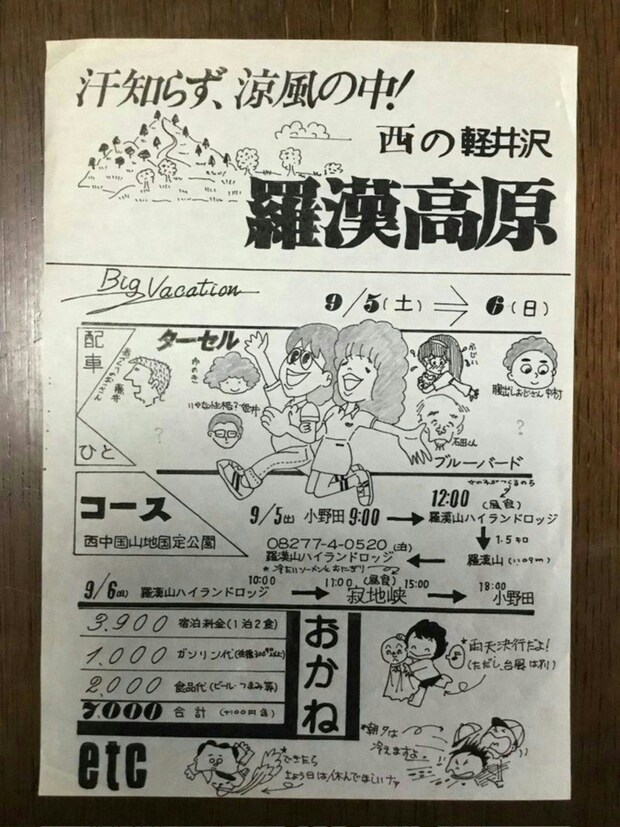 汗知らず、涼風の中!
西の軽井沢
羅漢高原
Big Vacation
9/5(土)⇒6(日)
配車
ひと
ターセル
ゆのき
いやな性格?登井
ふじい
腹出しおじさん中村
石田くん
?
?
ブルーバード
コース
西中国山地国定公園
9/5(土) 小野田 9:00 → 12:00 (昼食)
羅漢山ハイランドロッジ
↓1.5キロ
羅漢山(1109m)
08277-4-0520(泊)
羅漢山ハイランドロッジ ←
*冷たいソーメンとおにぎり
9/6(日) 羅漢山ハイランドロッジ 10:00 → 11:00(昼食) 寂地峡 15:00 → 18:00 小野田
おかね
3,900 宿泊料金(1泊2食)
1,000 ガソリン代
2,000 食品代(ビール・つまみ等)
7,000 合計 (+100円含)
*雨天決行だよ!
(ただし、台風は別)
*朝夕は
冷えますよ。
etc
*できたら
土よう日は休んでほしいナァ